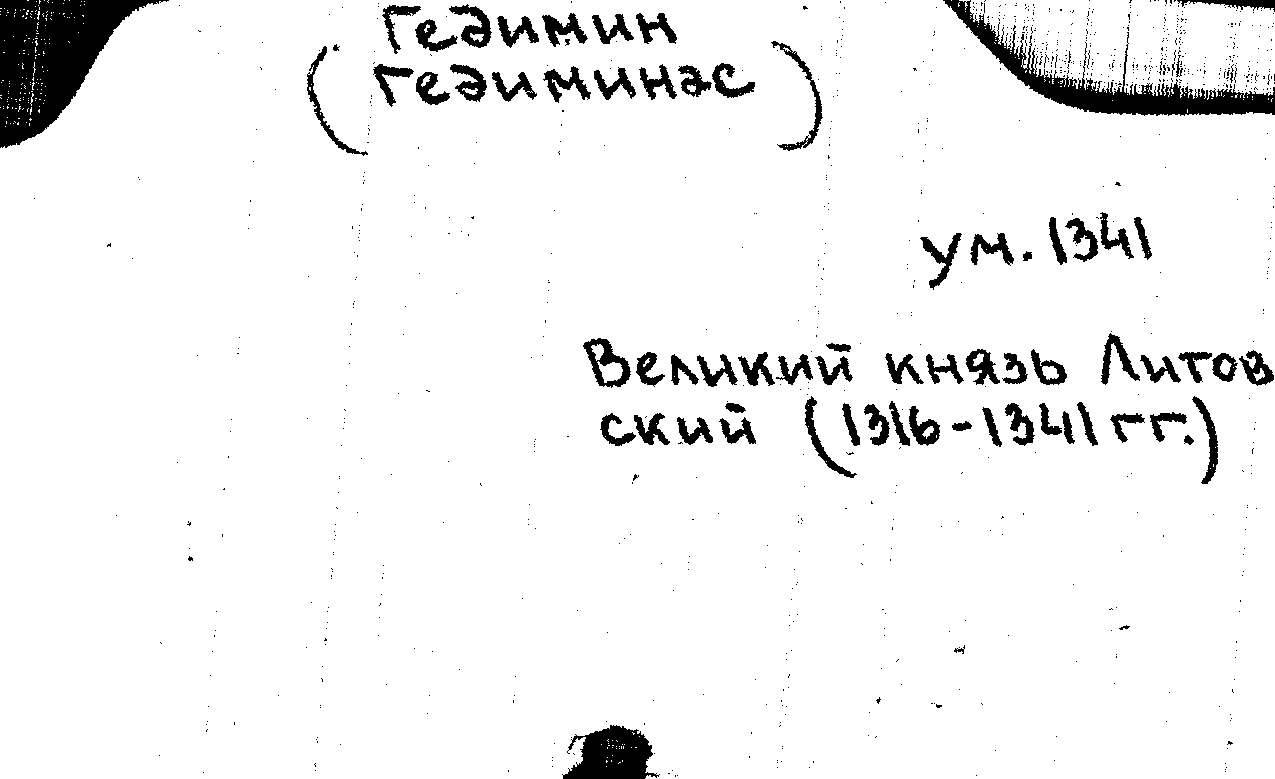 Гедимин
(Гедиминас)
ум. 1341
Великий князь Литов
ский (1316-1341 гг.)